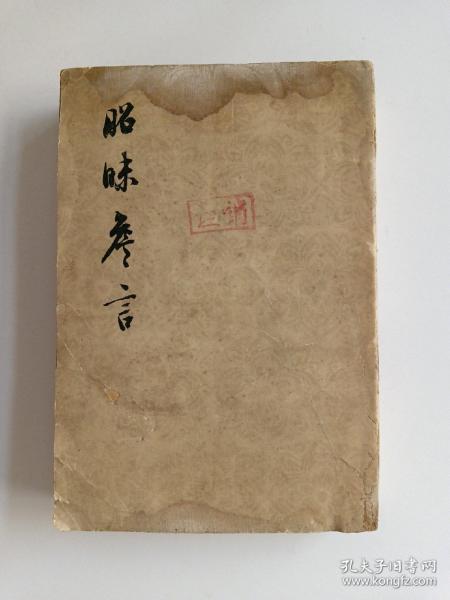 昭昧詹言
注销
孔夫子旧书网
www.kongfz.com